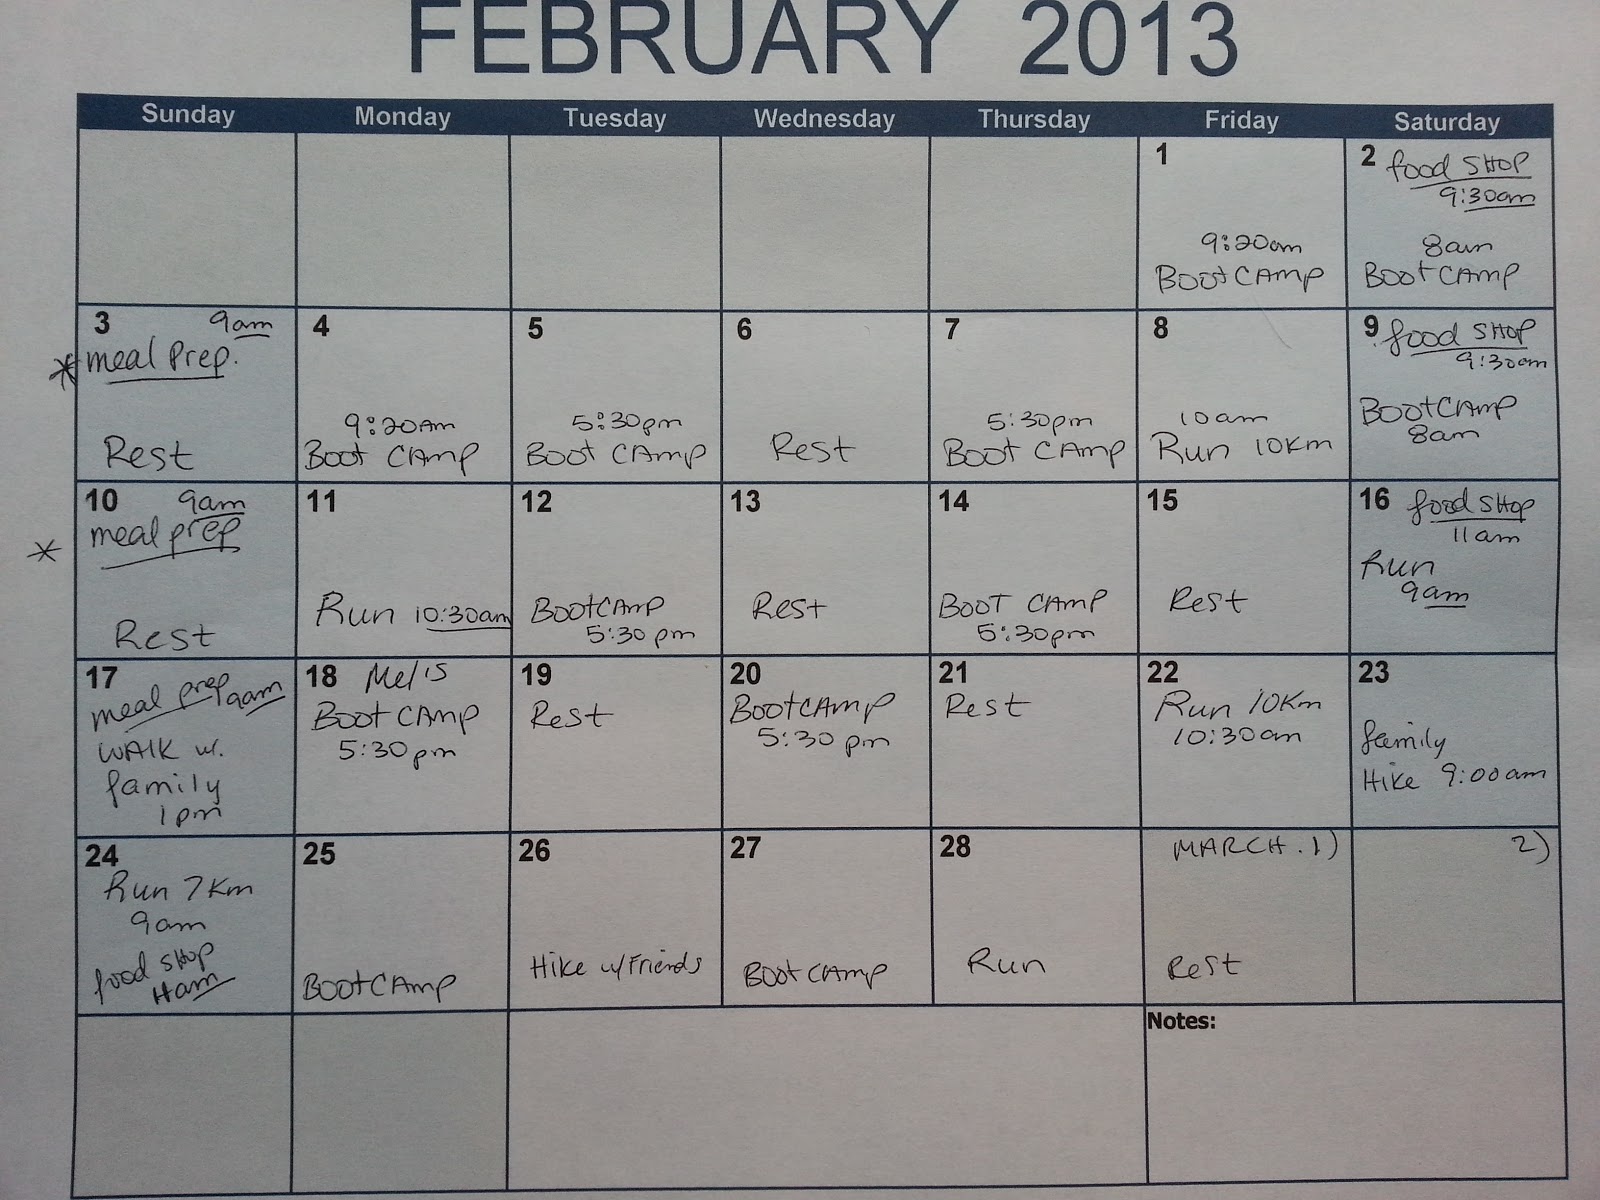 FEBRUARY 2013
Sunday Monday Tuesday Wednesday Thursday Friday Saturday
1
9:20am
BootCAmp
2 food SHOP
9:30am
8am
BootCAmp
3 9am
* meal Prep.
Rest
4
9:20Am
Boot CAmp
5
5:30pm
Boot CAmp
6
Rest
7
5:30pm
Boot CAmp
8
10am
Run 10Km
9 food SHOP
9:30am
BootCAmp
8am
10 9am
* meal prep
Rest
11
Run 10:30am
12
BootCAmp
5:30pm
13
Rest
14
BOOT CAmp
5:30pm
15
Rest
16 food SHOP
11am
Run
9am
17
meal prep 9am
WAlK w.
family
1pm
18 Mel's
Boot CAmp
5:30pm
19
Rest
20
BootCAmp
5:30pm
21
Rest
22
Run 10Km
10:30am
23
family
Hike 9:00am
24
Run 7Km
9am
food SHOP
11am
25
BootCAmp
26
Hike w/Friends
27
BootCAmp
28
Run
MARCH. 1)
Rest
2)
Notes: